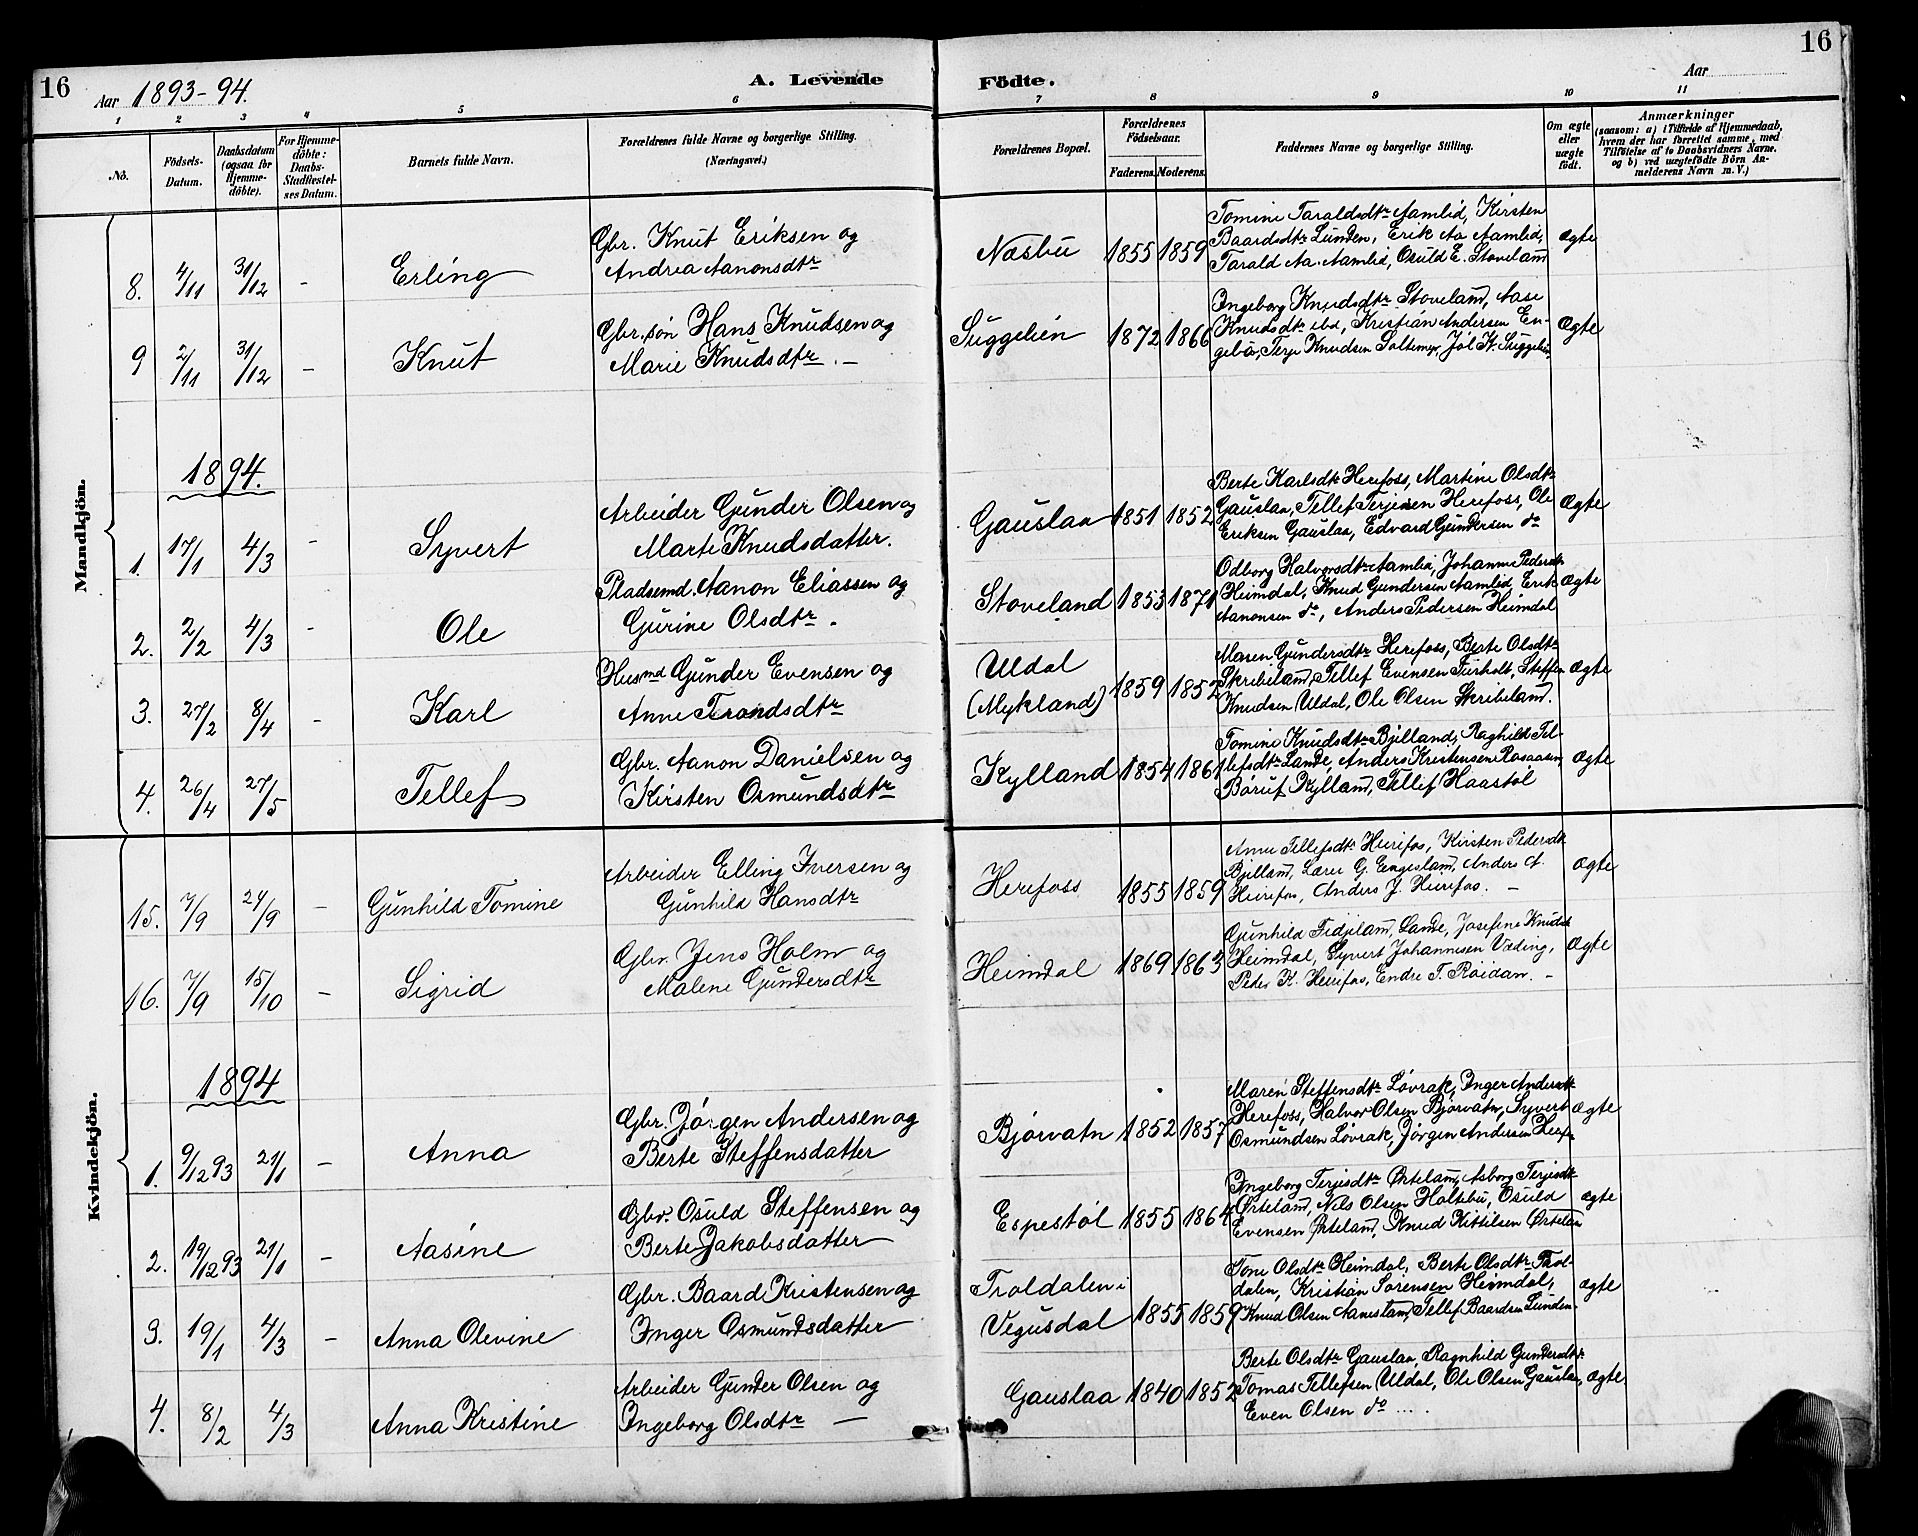 16
Aar 1893-94.
A. Levende
Födte.
Aar
16
1 2 3 4 5 6 7 8 9 10 11
No.
Födsels-Datum.
Daabsdatum (ogsaa for Hjemme-döbte).
For Hjemme-döbte: Daabs-Stadfæstel-ses Datum.
Barnets fulde Navn.
Forældrenes fulde Navne og borgerlige Stilling.
(Næringsvei.)
Forældrenes Bopæl.
Forældrenes Födselsaar.
Faderens. Moderens.
Faddernes Navne og borgerlige Stilling.
Om ægte eller uægte födt.
Anmærkninger
(saasom: a) i Tilfælde af Hjemmedaab, hvem der har forrettet samme, med Tilföielse af to Daabsvidners Navne. og b) ved uægtefödte Börn Anmelderens Navn m. V.)
Mandkjön.
8. 4/11 31/12 - Erling
Gbr. Knut Eriksen og
Andrea Aanonsdtr
Næsbu 1855 1859
Tomine Taraldsdtr Aamlid, Kirsten
Baardsdtr Lunden, Erik Aa Aamlid,
Tarald Aa. Aamlid, Osuld E. Stoveland
Ægte
9 2/11 31/12 - Knut
Gbr.søn Hans Knudsen og
Marie Knudsdtr. -
Suggelien 1872 1866
Ingeborg Knudsdtr Stoveland, Aase
Knudsdtr ibd, Kristian Andersen En-
gebø, Terje Knudsen Soltemyr, Jól K. Suggelien
Ægte
1894.
1. 17/1 4/3 - Syvert
Arbeider Gunder Olsen og
Marte Knudsdatter.
Gauslaa 1851 1852
Berte Karlsdtr Herefoss, Martine Olsdtr
Gauslaa, Tellef Terjesen Herefoss, Ole
Eriksen Gauslaa, Edvard Gundersen do
Ægte
2. 2/2 4/3 - Ole
Pladsemd. Aanon Eliassen og
Gurine Olsdtr.
Stoveland 1853 1871
Odborg Halvorsdtr Aamlid, Johanne Pedersdtr
Heimdal, Knud Gundersen Aamlid, Erik
Aanonsen do, Anders Pedersen Heimdal
Ægte
3. 27/2 8/4 - Karl
Husmd Gunder Evensen og
Anne Trondsdtr
Uldal
(Mykland) 1859 1852
Maren Gundersdtr Herefoss, Berte Olsdtr
Skribeland, Tellef Evensen Furholt, Steffen
Knudsen Uldal, Ole Olsen Skribeland.
Ægte
4. 26/4 27/5 Tellef
Gbr. Aanon Danielsen og
Kirsten Osmundsdtr
Kylland 1854 1861
Tomine Knudsdtr Bjelland, Raghild Tel-
lefsdtr Lande, Anders Kristensen Rosaasen,
Børuf Kylland, Tellef Haastøl
Ægte
Kvindekjön.
15. 7/9 24/9 - Gunhild Tomine
Arbeider Elling Iversen og
Gunhild Hansdtr
Herefoss 1855 1859
Anne Tellefsdtr Heirefos, Kirsten Pedersdtr
Bjelland, Lars G. Engesland, Anders A.
Heirefos, Anders J. Heirefos. -
Ægte
16. 7/9 15/10 - Sigrid
Gbr. Jens Holm og
Malene Gundersdtr
Heimdal 1869 1863
Gunhild Fidjeland, Lande, Josefine Knudsdtr
Heimdal, Syvert Johannesen Væding,
Peder K. Heirefos, Endre T. Røidam. -
Ægte
1894
1. 9/12 93 21/1 - Anna
Gbr. Jørgen Andersen og
Berte Steffensdatter
Bjørvatn 1852 1857
Maren Steffensdtr Løvrak, Inger Andersdtr
Herefoss, Halvor Olsen Bjørvatn, Syvert
Osmundsen Løvrak, Jørgen Andersen Herf.
ægte
2. 19/12 93 21/1 - Aasine
Gbr. Osuld Steffensen og
Berte Jakobsdatter
Espestøl 1855 1864
Ingeborg Terjesdtr Ørteland, Asborg Terjesdtr
Ørteland, Nils Olsen Holtebu, Osuld
Evensen Ørteland, Knud Kittilsen Ørteland
ægte
3. 19/1 4/3 - Anna Olevine
Gbr. Baard Kristensen og
Inger Osmundsdatter
Troldalen i
Vegusdal 1855 1859
Tone Olsdtr Heimdal, Berte Olsdtr Trol-
dalen, Kristian Sørensen Heimdal,
Knud Olsen Aanestam, Tellef Baardsen Lunden
ægte
4. 8/2 4/3 Anna Kristine
Arbeider Gunder Olsen og
Ingeborg Olsdtr -
Gauslaa 1840 1852
Berte Olsdtr Gauslaa, Ragnhild Gundersdtr
Tomas Tellefsen Uldal, Ole Olsen Gauslaa,
Even Olsen do ....
ægte